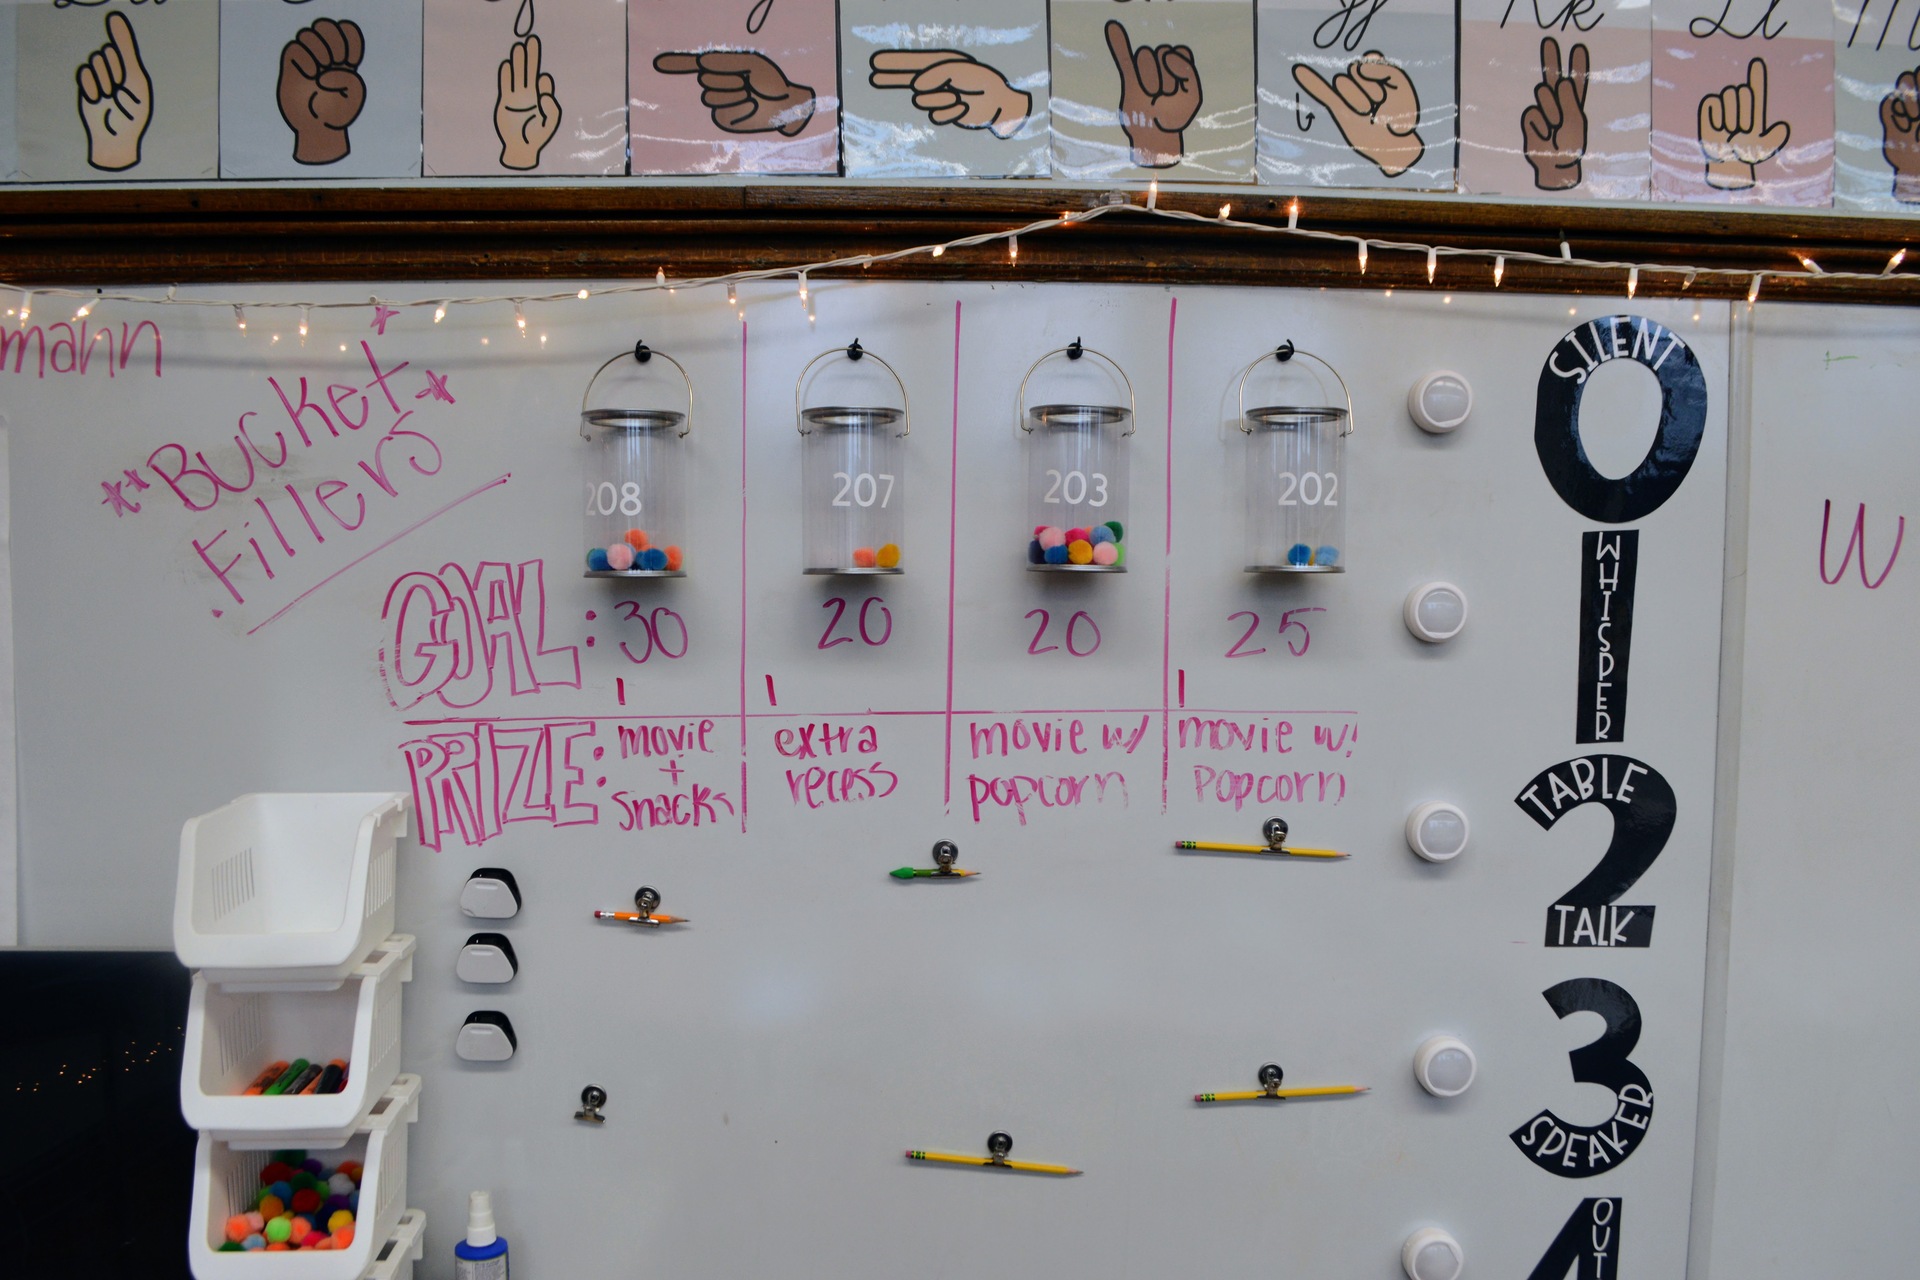 Jj
Kk
Ll
mann
**Bucket*
Fillers
208
207
203
202
GOAL: 30
20
20
25
PRIZE: movie
+
snacks
extra
recess
movie w/
popcorn
movie w/
popcorn
0
SILENT
1
WHISPER
2
TABLE
TALK
3
SPEAKER
4
OUT
W